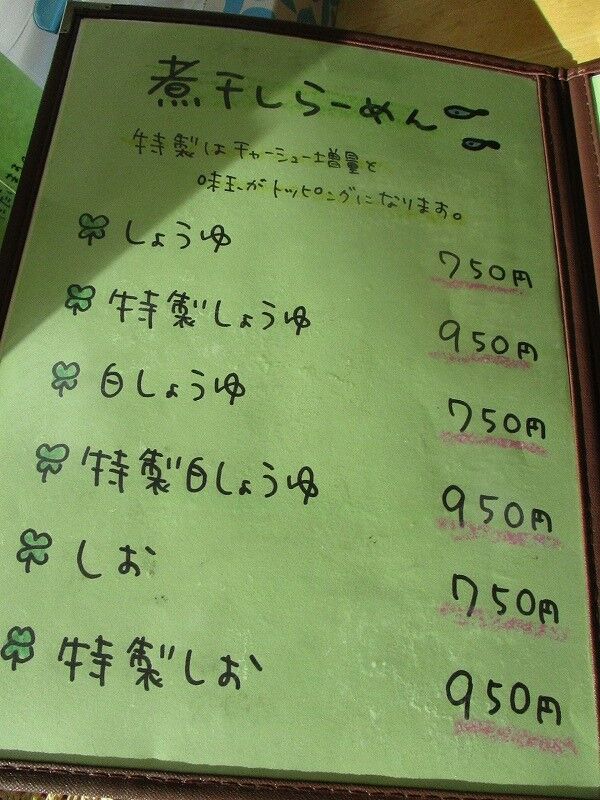 煮干しらーめん
特製はチャーシュー増量と
味玉がトッピングになります。
しょうゆ 750円
特製しょうゆ 950円
白しょうゆ 750円
特製白しょうゆ 950円
しお 750円
特製しお 950円